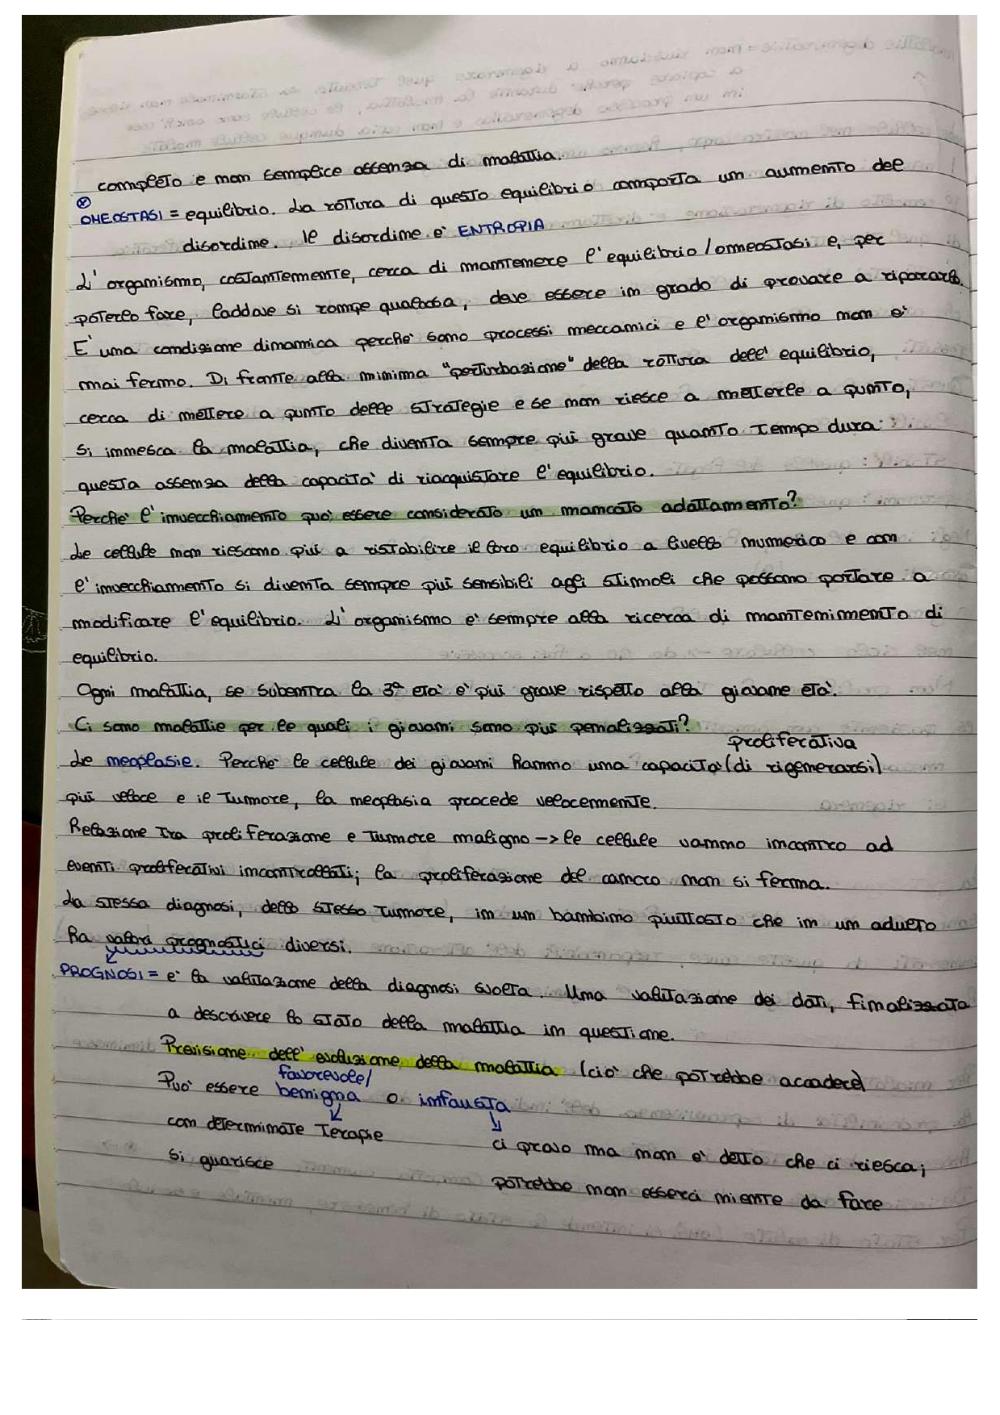 completo e non semplice assenza di malattia.
OMEOSTASI = equilibrio. La rottura di questo equilibrio comporta un aumento del
disordine. Il disordine è ENTROPIA
L'organismo, costantemente, cerca di mantenere l'equilibrio/omeostasi e, per
poterlo fare, laddove si rompe qualcosa, deve essere in grado di provare a ripararlo.
E' una condizione dinamica perchè sono processi meccanici e l'organismo non è
mai fermo. Di fronte alla minima "perturbazione" della rottura dell'equilibrio,
cerca di mettere a punto delle strategie e se non riesce a metterle a punto,
si innesca la malattia, che diventa sempre più grave quanto tempo dura
questa assenza della capacità di riacquistare l'equilibrio.
Perchè l'invecchiamento può essere considerato un mancato adattamento?
Le cellule non riescono più a ristabilire il loro equilibrio a livello numerico e con
l'invecchiamento si diventa sempre più sensibili agli stimoli che possono portare a
modificare l'equilibrio. L'organismo è sempre alla ricerca di mantenimento di
equilibrio.
Ogni malattia, se subentra la 3ª età è più grave rispetto alla giovane età.
Ci sono malattie per le quali i giovani sono più penalizzati?
proliferativa
Le neoplasie. Perchè le cellule dei giovani hanno una capacità (di rigenerarsi)
più veloce e il tumore, la neoplasia procede velocemente.
Relazione tra proliferazione e tumore maligno -> le cellule vanno incontro ad
eventi proliferativi incontrollati; la proliferazione del cancro non si ferma.
La stessa diagnosi, dello stesso tumore, in un bambino piuttosto che in un adulto
ha valori prognostici diversi.
PROGNOSI = è la valutazione della diagnosi svolta. Una valutazione dei dati, finalizzata
a descrivere lo stato della malattia in questione.
Previsione dell'evoluzione della malattia (ciò che potrebbe accadere)
favorevole/
Può essere benigna o infausta
con determinate terapie
si guarisce
ci provo ma non è detto che ci riesca;
potrebbe non esserci niente da fare